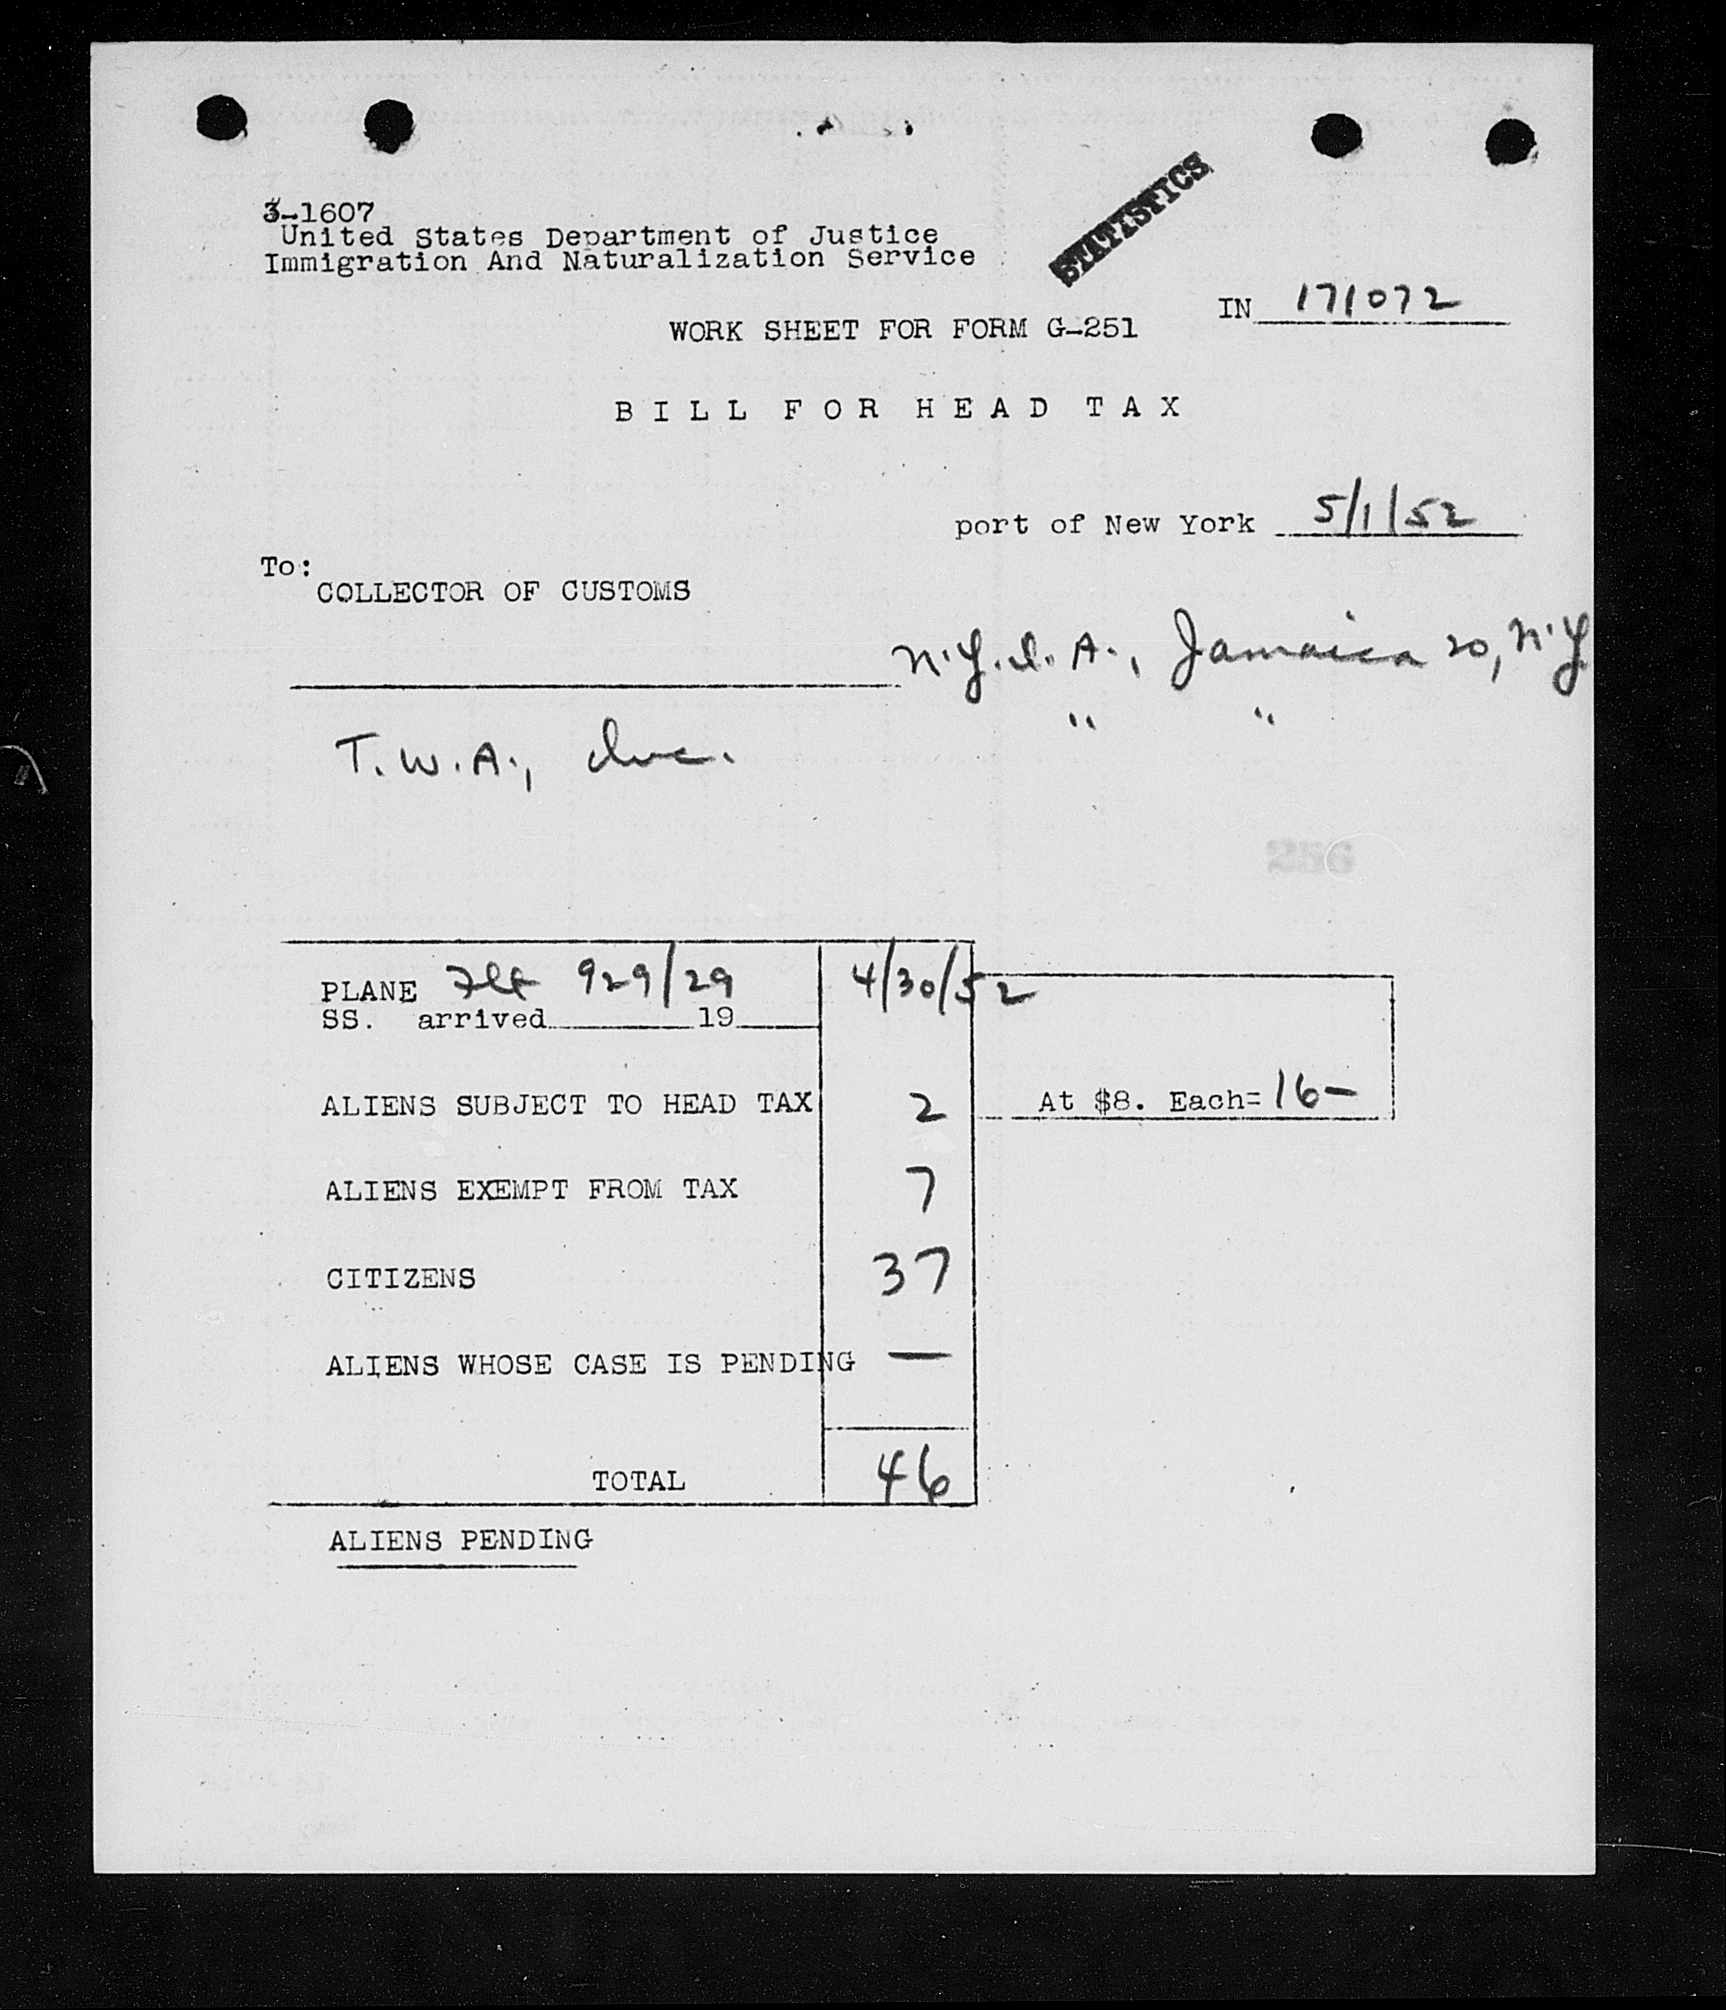 STATISTICS
3-1607
United States Department of Justice
Immigration And Naturalization Service
IN 171072
WORK SHEET FOR FORM G-251
BILL FOR HEAD TAX
port of New York 5/1/52
To:
COLLECTOR OF CUSTOMS
N.Y.I.A., Jamaica 20, N.Y.
" "
T.W.A., Inc.
256
PLANE Flt 929/29 4/30/52
SS. arrived 19
ALIENS SUBJECT TO HEAD TAX 2 At $8. Each= 16-
ALIENS EXEMPT FROM TAX 7
CITIZENS 37
ALIENS WHOSE CASE IS PENDING —
TOTAL 46
ALIENS PENDING